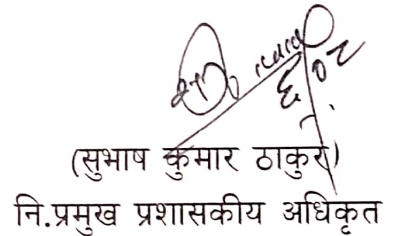 (सुभाष कुमार ठाकुर)
नि.प्रमुख प्रशासकीय अधिकृत